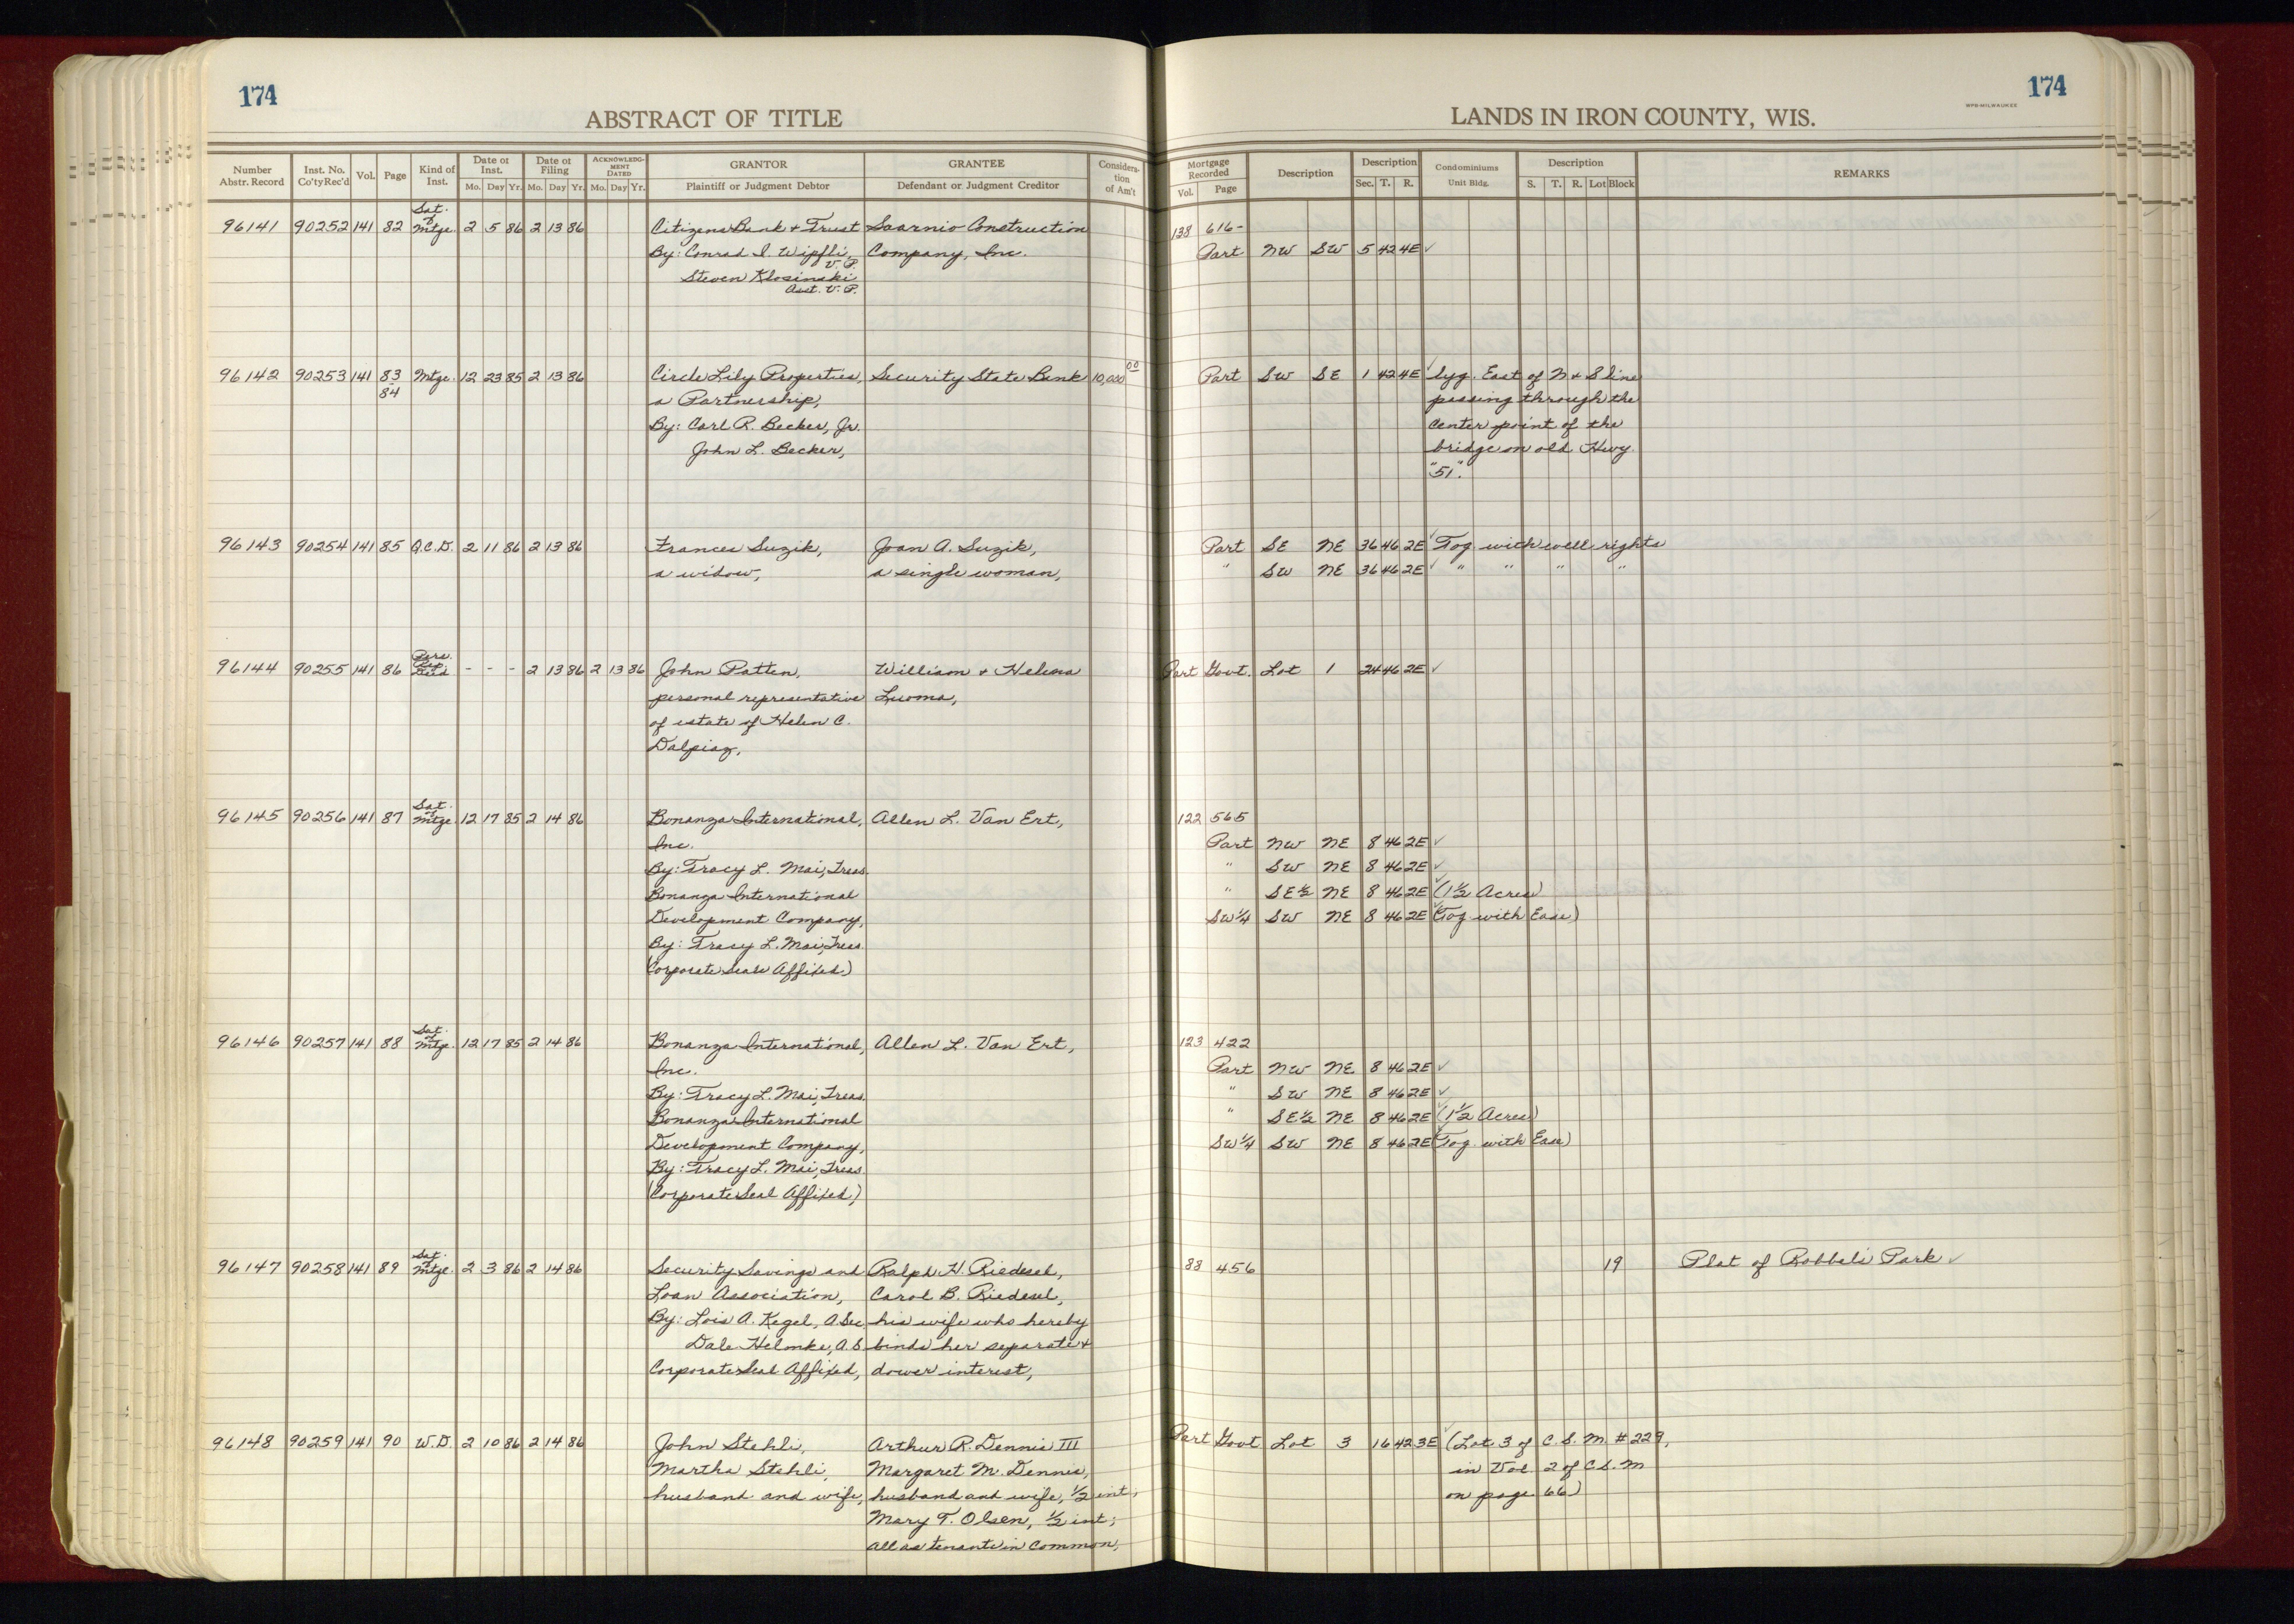 174
ABSTRACT OF TITLE
Number Abstr. Record
Inst. No. Co'ty Rec'd
Vol.
Page
Kind of Inst.
Date of Inst.
Mo. Day Yr.
Date of Filing
Mo. Day Yr.
ACKNOWLEDGMENT DATED
Mo. Day Yr.
GRANTOR
Plaintiff or Judgment Debtor
GRANTEE
Defendant or Judgment Creditor
Consideration of Am't
174
WPB-MILWAUKEE
LANDS IN IRON COUNTY, WIS.
Mortgage Recorded
Vol. Page
Description
Description
Sec. T. R.
Condominiums
Unit Bldg.
Description
S. T. R. Lot Block
REMARKS
Sat.
of
96141 90252 141 82 Mtge. 2 5 86 2 13 86 Citizens Bank & Trust Saarnio Construction 138 616-
By: Conrad I. Wipfli, Company, Inc. Part NW SW 5 42 4E ✓
V. P.
Steven Klosinski
Asst. V. P.
96142 90253 141 83 Mtge. 12 23 85 2 13 86 Circle Lily Properties, Security State Bank 10,000 00 Part SW SE 1 42 4E ✓ lyg. East of N & S line
84 a Partnership, passing through the
By: Carl R. Becker, Jr. Center point of the
John L. Becker, bridge on old Hwy.
"51".
96143 90254 141 85 Q.C.D. 2 11 86 2 13 86 Frances Suzik, Joan A. Suzik, Part SE NE 36 46 2E ✓ Tog. with well rights
a widow, a single woman, " SW NE 36 46 2E ✓ " " " "
Pers.
Rep.
96144 90255 141 86 Deed - - - 2 13 86 2 13 86 John Patten, William & Helena Part Govt. Lot 1 24 46 2E ✓
personal representative Luoma,
of estate of Helen C.
Dalpiaz,
Sat.
of
96145 90256 141 87 Mtge. 12 17 85 2 14 86 Bonanza International, Allen L. Van Ert, 122 565
Inc. Part NW NE 8 46 2E ✓
By: Tracy L. Mai, Treas. " SW NE 8 46 2E ✓
Bonanza International " SE½ NE 8 46 2E ✓ (1½ Acres)
Development Company, SW¼ SW NE 8 46 2E ✓ (Tog. with Ease)
By: Tracy L. Mai, Treas.
(Corporate Seals Affixed)
Sat.
of
96146 90257 141 88 Mtge. 12 17 85 2 14 86 Bonanza International, Allen L. Van Ert, 123 422
Inc. Part NW NE 8 46 2E ✓
By: Tracy L. Mai, Treas. " SW NE 8 46 2E ✓
Bonanza International " SE½ NE 8 46 2E ✓ (1½ Acres)
Development Company, SW¼ SW NE 8 46 2E ✓ (Tog. with Ease)
By: Tracy L. Mai, Treas.
(Corporate Seal Affixed)
Sat.
of
96147 90258 141 89 Mtge. 2 3 86 2 14 86 Security Savings and Ralph H. Riedesel, 88 456 19 Plat of Robbels Park ✓
Loan Association, Carol B. Riedesel,
By: Lois A. Kegel, A. Sec. his wife who hereby
Dale Helmke, A.S. binds her separate &
Corporate Seal Affixed, dower interest,
96148 90259 141 90 W.D. 2 10 86 2 14 86 John Stehli, Arthur R. Dennis III Part Govt Lot 3 16 42 3E ✓ (Lot 3 of C. S. M. #229,
Martha Stehli, Margaret M. Dennis, in Vol. 2 of C.S.M
husband and wife, husband and wife, ½ int; on page 66)
Mary T. Olsen, ½ int;
all as tenants in common,